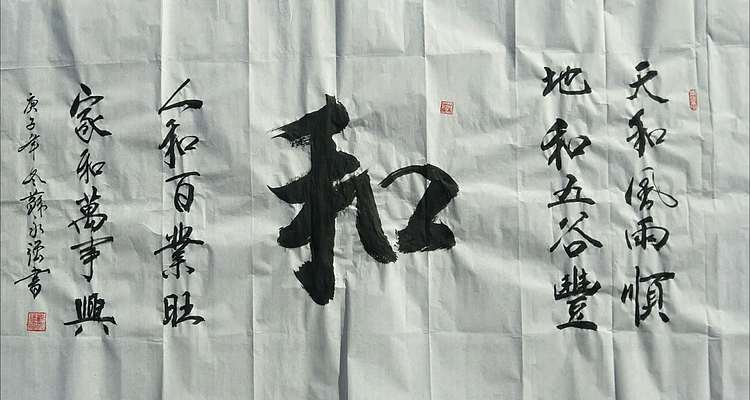 天和風雨順
地和五谷豐
和
人和百業旺
家和萬事興
庚子年冬薛永強書